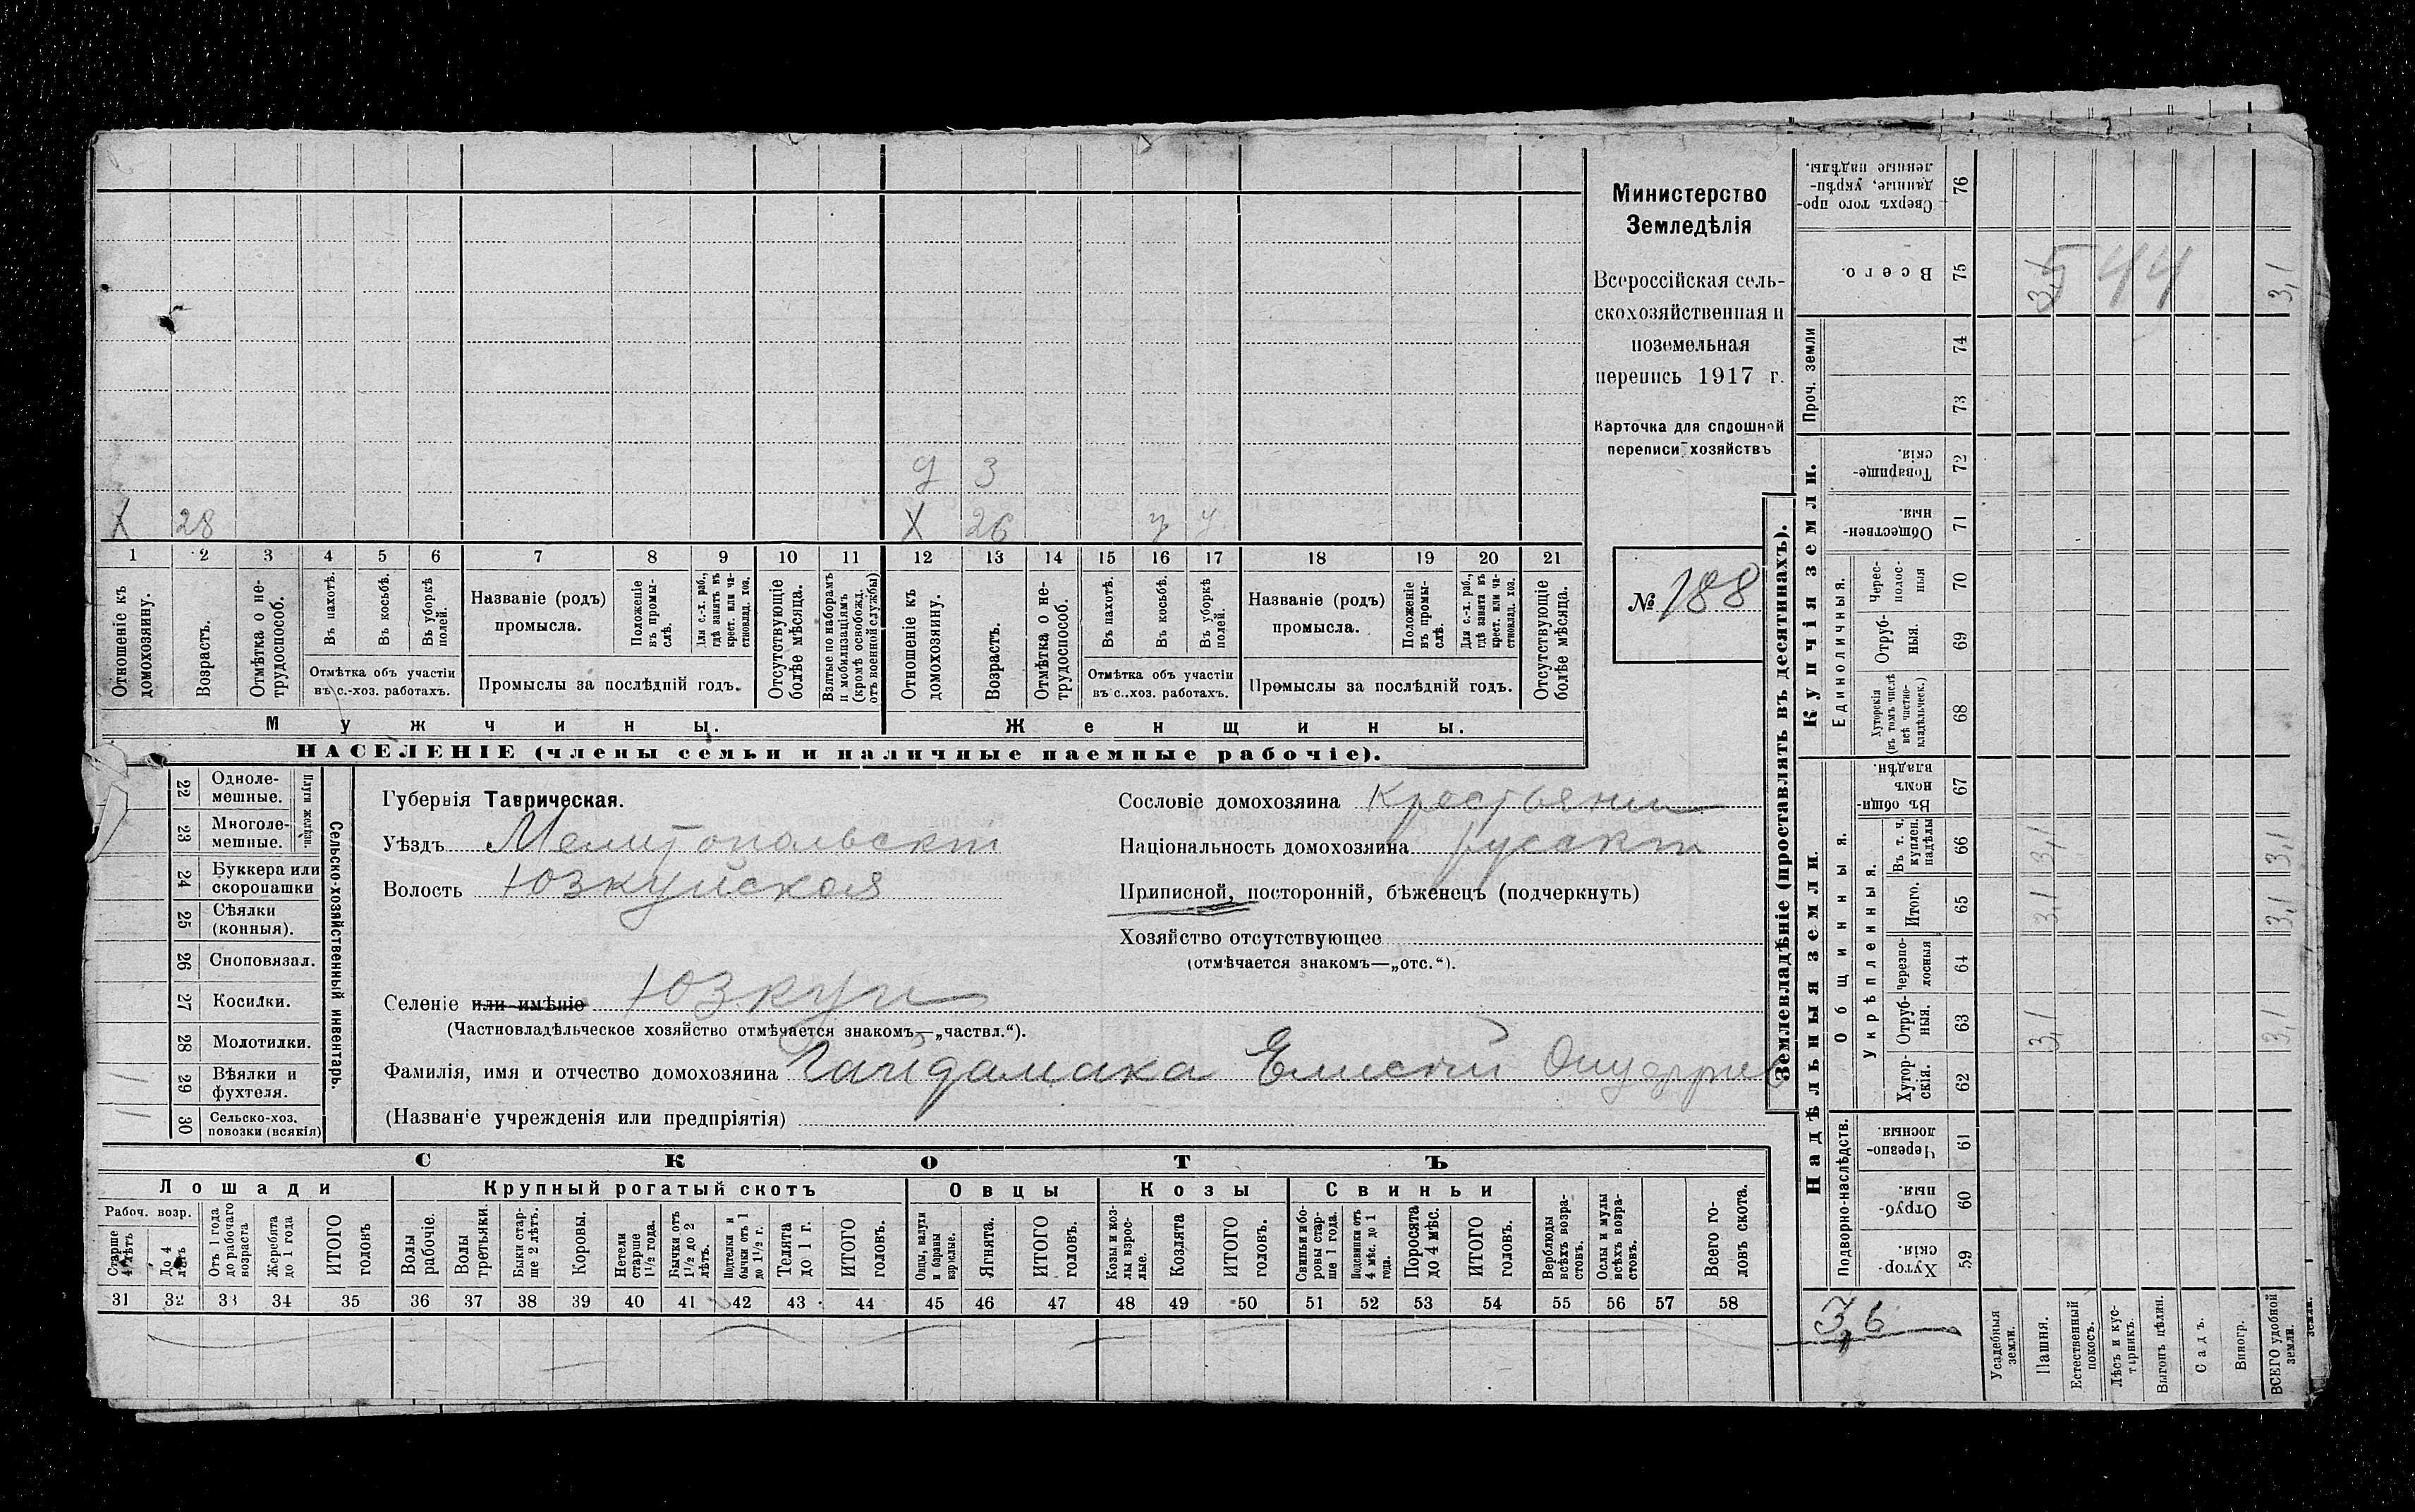 Министерство
Земледѣлія
Всероссійская сель-
скохозяйственная и
поземельная
перепись 1917 г.
Карточка для сплошной
переписи хозяйствъ
№ 188
д 3
X 28 X 26 у у
1 2 3 4 5 6 7 8 9 10 11 12 13 14 15 16 17 18 19 20 21
Отношеніе къ
домохозяину.
Возрастъ.
Отмѣтка о не-
трудоспособ.
Въ пахотѣ.
Въ косьбѣ.
Въ уборкѣ
полей.
Отмѣтка объ участіи
въ с.-хоз. работахъ.
Названіе (родъ)
промысла.
Положеніе
въ промы-
слѣ.
Для с.-х. раб.,
гдѣ занятъ въ
крест. или ча-
стновлад. хоз.
Промыслы за послѣдній годъ.
Отсутствующіе
болѣе мѣсяца.
Взятые по наборамъ
и мобилизаціямъ
(кромѣ освобожд.
отъ военной службы)
Отношеніе къ
домохозяину.
Возрастъ.
Отмѣтка о не-
трудоспособ.
Въ пахотѣ.
Въ косьбѣ.
Въ уборкѣ
полей.
Отмѣтка объ участіи
въ с.-хоз. работахъ.
Названіе (родъ)
промысла.
Положеніе
въ промы-
слѣ.
Для с.-х. раб.,
гдѣ занята въ
крест. или ча-
стновлад. хоз.
Промыслы за послѣдній годъ.
Отсутствующіе
болѣе мѣсяца.
Мужчины.
Женщины.
НАСЕЛЕНІЕ (члены семьи и наличные наемные рабочіе).
Сельско-хозяйственный инвентарь
Плуги желѣзн.
22 Одноле-
мешные.
23 Многоле-
мешные.
24 Буккера или
скоропашки
25 Сѣялки
(конныя).
26 Сноповязал.
27 Косилки.
28 Молотилки.
29 Вѣялки и
фухтеля.
30 Сельско-хоз.
повозки (всякія)
Губернія Таврическая.
Уѣздъ Мелитопольскій
Волость Юзкуйская
Селеніе или имѣніе Юзкуи
(Частновладѣльческое хозяйство отмѣчается знакомъ—„частвл.“).
Фамилія, имя и отчество домохозяина Гайдамака Елисей
(Названіе учрежденія или предпріятія)
Сословіе домохозяина Крестьянин
Національность домохозяина русакъ
Приписной, посторонній, бѣженецъ (подчеркнуть)
Хозяйство отсутствующее
(отмѣчается знакомъ—„отс.“).
СКОТЪ
Лошади
Крупный рогатый скотъ
Овцы
Козы
Свиньи
Рабоч. возр.
Старше
4 лѣтъ
До 4
лѣтъ
Отъ 1 года
до рабочаго
возраста
Жеребята
до 1 года
ИТОГО
головъ
Волы
рабочіе.
Волы
третьяки.
Быки стар-
ше 2 лѣтъ.
Коровы.
Нетели
старше
1½ года.
Бычки отъ
1½ до 2
лѣтъ.
Подтелки и
бычки отъ 1
до 1½ г.
Телята
до 1 г.
ИТОГО
головъ.
Овцы, валухи
и бараны
взрослые.
Ягнята.
ИТОГО
головъ.
Козы и коз-
лы взрос-
лые.
Козлята
ИТОГО
головъ.
Свиньи и бо-
ровы стар-
ше 1 года.
Подсвинки отъ
4 мѣс. до 1
года.
Поросята
до 4 мѣс.
ИТОГО
головъ.
Верблюды
всѣхъ возра-
стовъ.
Ослы и мулы
всѣхъ возра-
стовъ.
Всего го-
ловъ скота.
31 32 33 34 35 36 37 38 39 40 41 42 43 44 45 46 47 48 49 50 51 52 53 54 55 56 57 58
Землевладѣніе (проставлять въ десятинахъ).
Купчія земли.
Надѣльныя земли.
Сверхъ того про-
данные, укрѣп-
ленные надѣлы.
76
Всего.
75 3,1 544 3,1
Проч. земли
74
73
Товарище-
скія.
72
Обществен-
ныя.
71
Единоличныя.
Черес-
полос-
ныя
70
Отруб-
ныя.
69
Хуторскія
(въ томъ числѣ
всѣ частно-
владѣльческ.)
68
Общинныя.
Укрѣпленныя.
Въ общи-
номъ
владѣн.
67
Въ т. ч.
куплен.
надѣлы
66 3,1 3,1
Итого.
65 3,1 3,1
Черезпо-
лосныя
64
Отруб-
ныя.
63 3,1 3,1
Хутор-
скія.
62
Подворно-наслѣдств.
Черезпо-
лосныя.
61
Отруб-
ныя.
60
Хутор-
скія.
59
3,6
Усадебныя
земли.
Пашня.
Естественный
покосъ.
Лѣсъ и кус-
тарникъ.
Выгонъ цѣлин.
Садъ.
Виногр.
ВСЕГО удобной
земли.
земли.